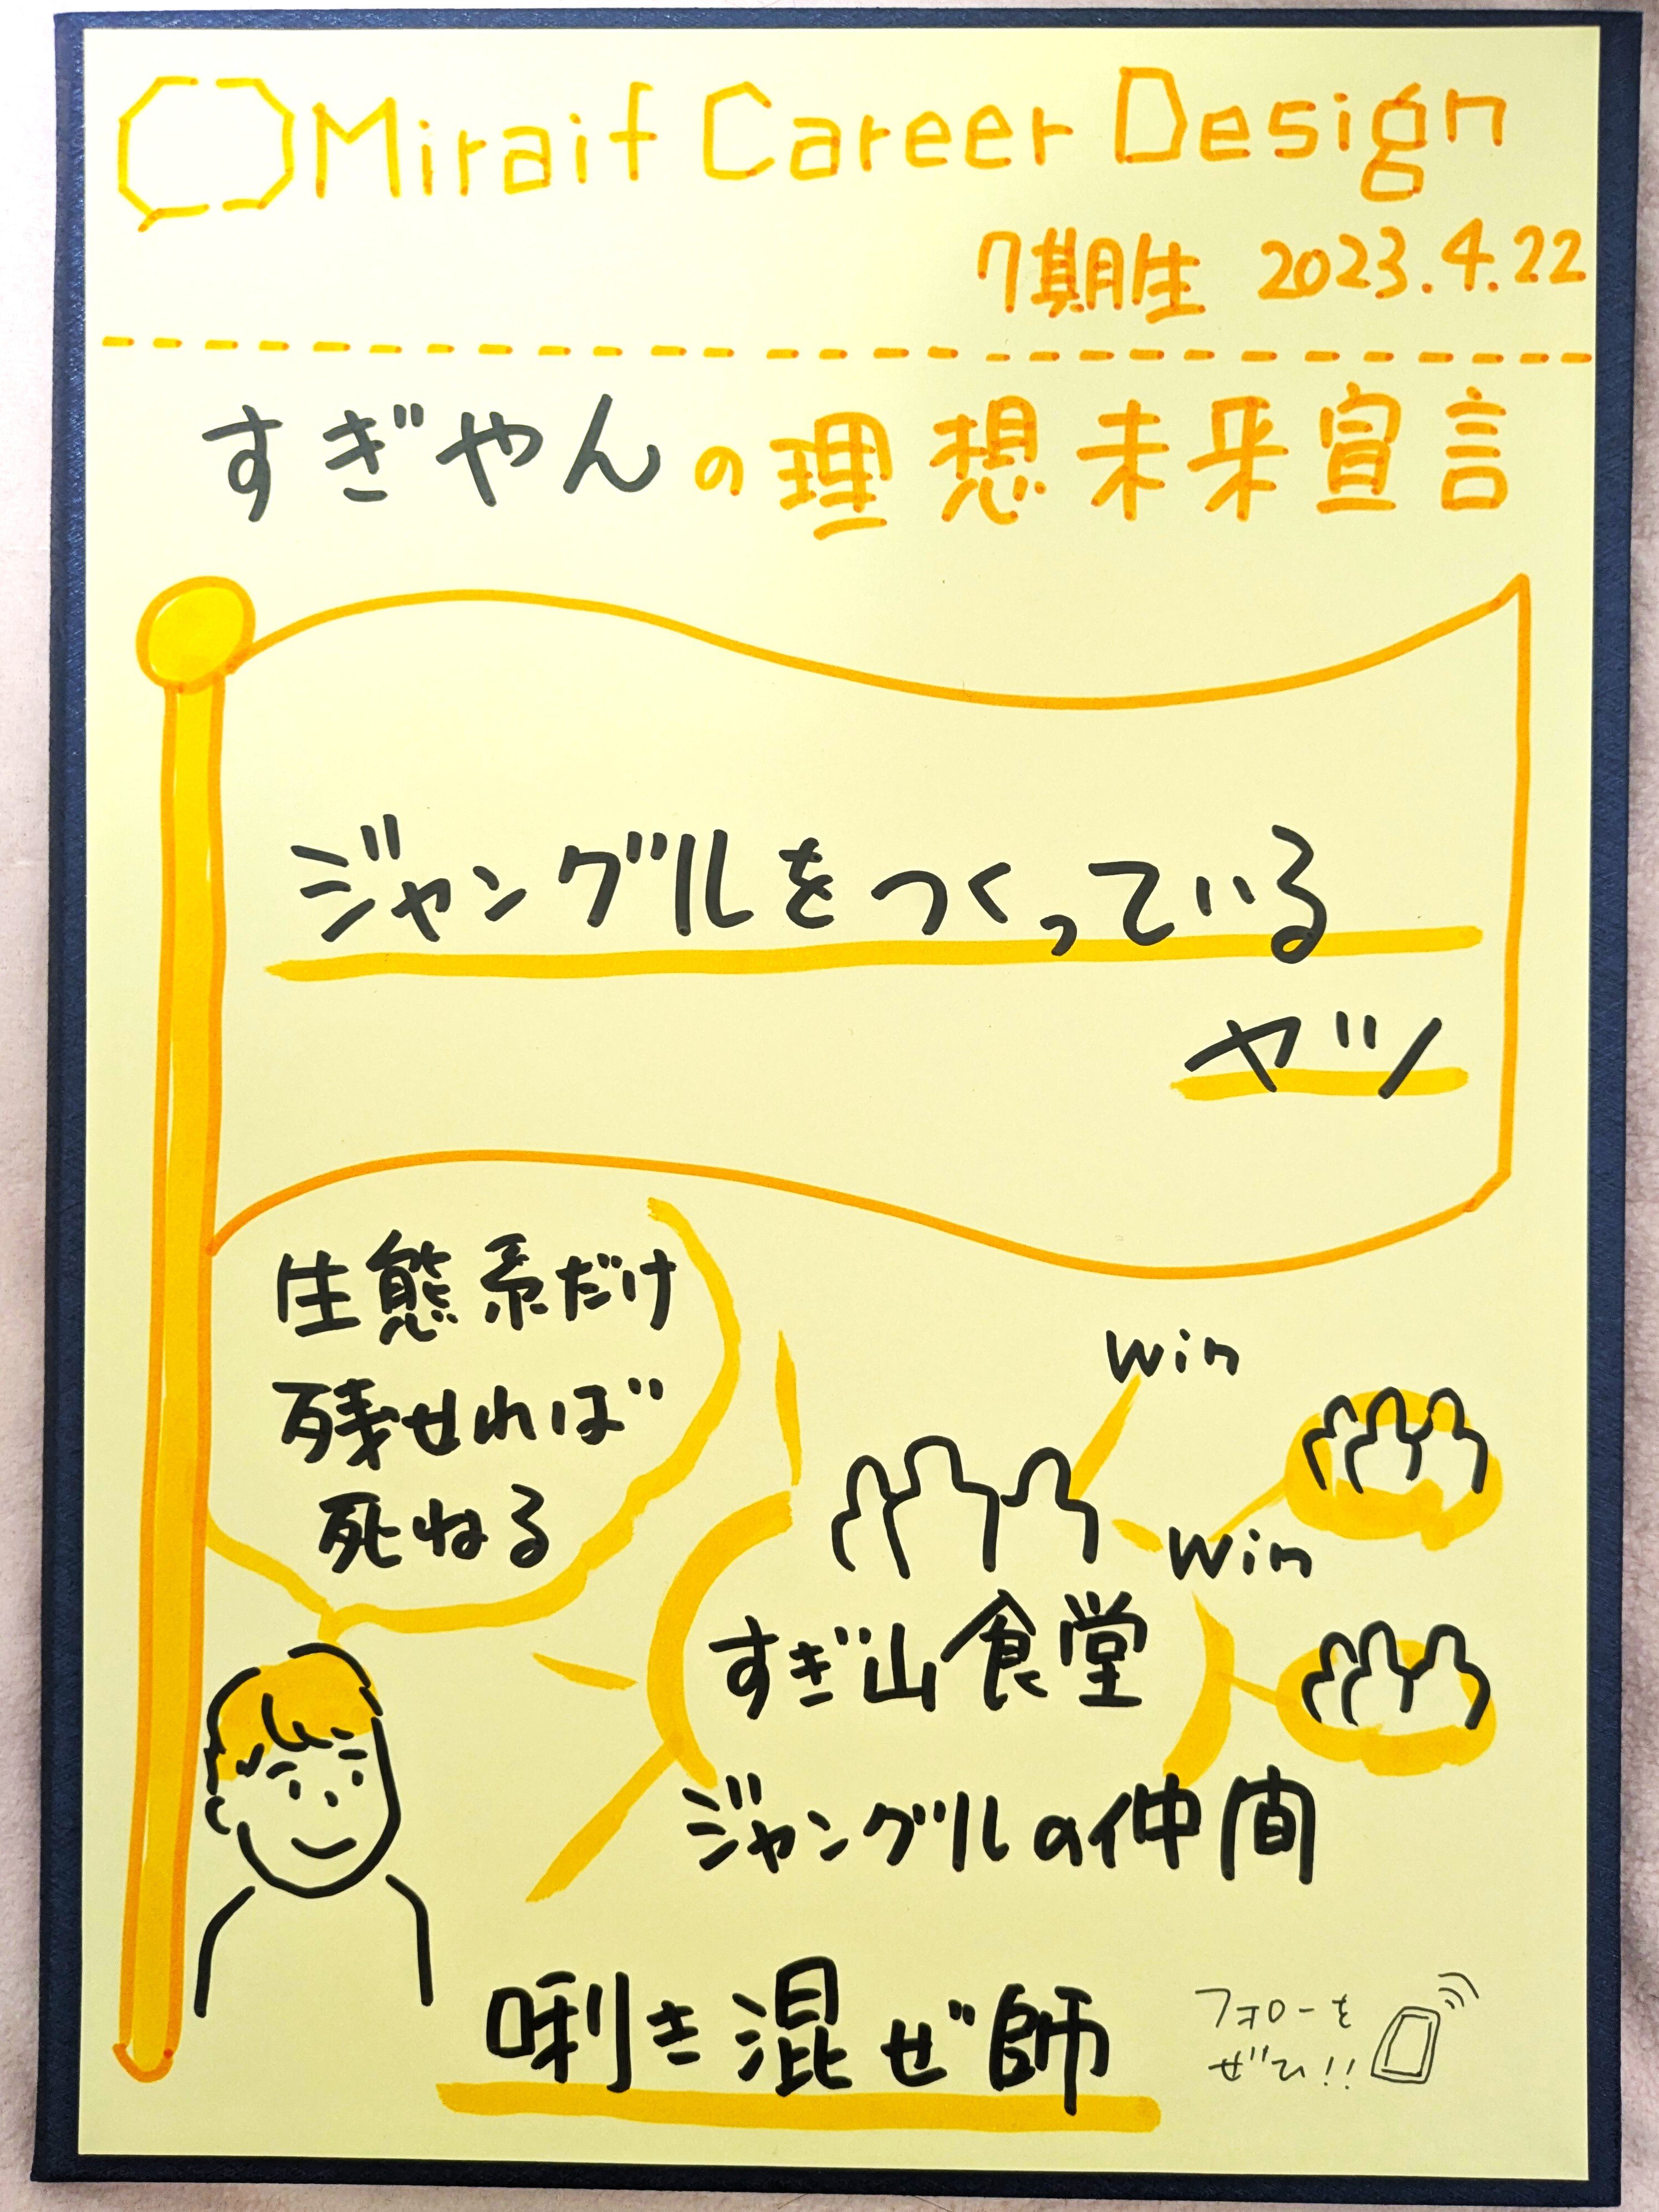 Miraif Career Design
7期生 2023.4.22
すぎやんの理想未来宣言
ジャングルをつくっている
ヤツ
生態系だけ
残せれば
死ねる
win
win
すぎ山食堂
ジャングルの仲間
唎き混ぜ師
フォローを
ぜひ!!